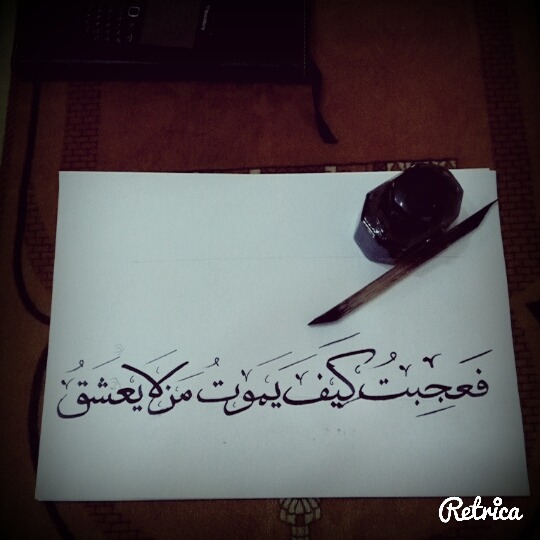 فَعَجِبتُ كَيفَ يَموتُ مَن لا يَعشَقُ
Retrica